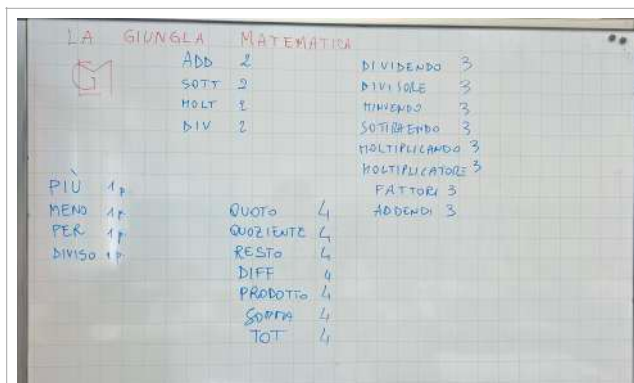 LA GIUNGLA MATEMATICA
GM
ADD 2
SOTT 2
MOLT 2
DIV 2
DIVIDENDO 3
DIVISORE 3
MINUENDO 3
SOTTRAENDO 3
MOLTIPLICANDO 3
MOLTIPLICATORE 3
FATTORI 3
ADDENDI 3
PIÙ 1 p.
MENO 1 p.
PER 1 p.
DIVISO 1 p.
QUOTO 4
QUOZIENTE 4
RESTO 4
DIFF 4
PRODOTTO 4
SOMMA 4
TOT 4